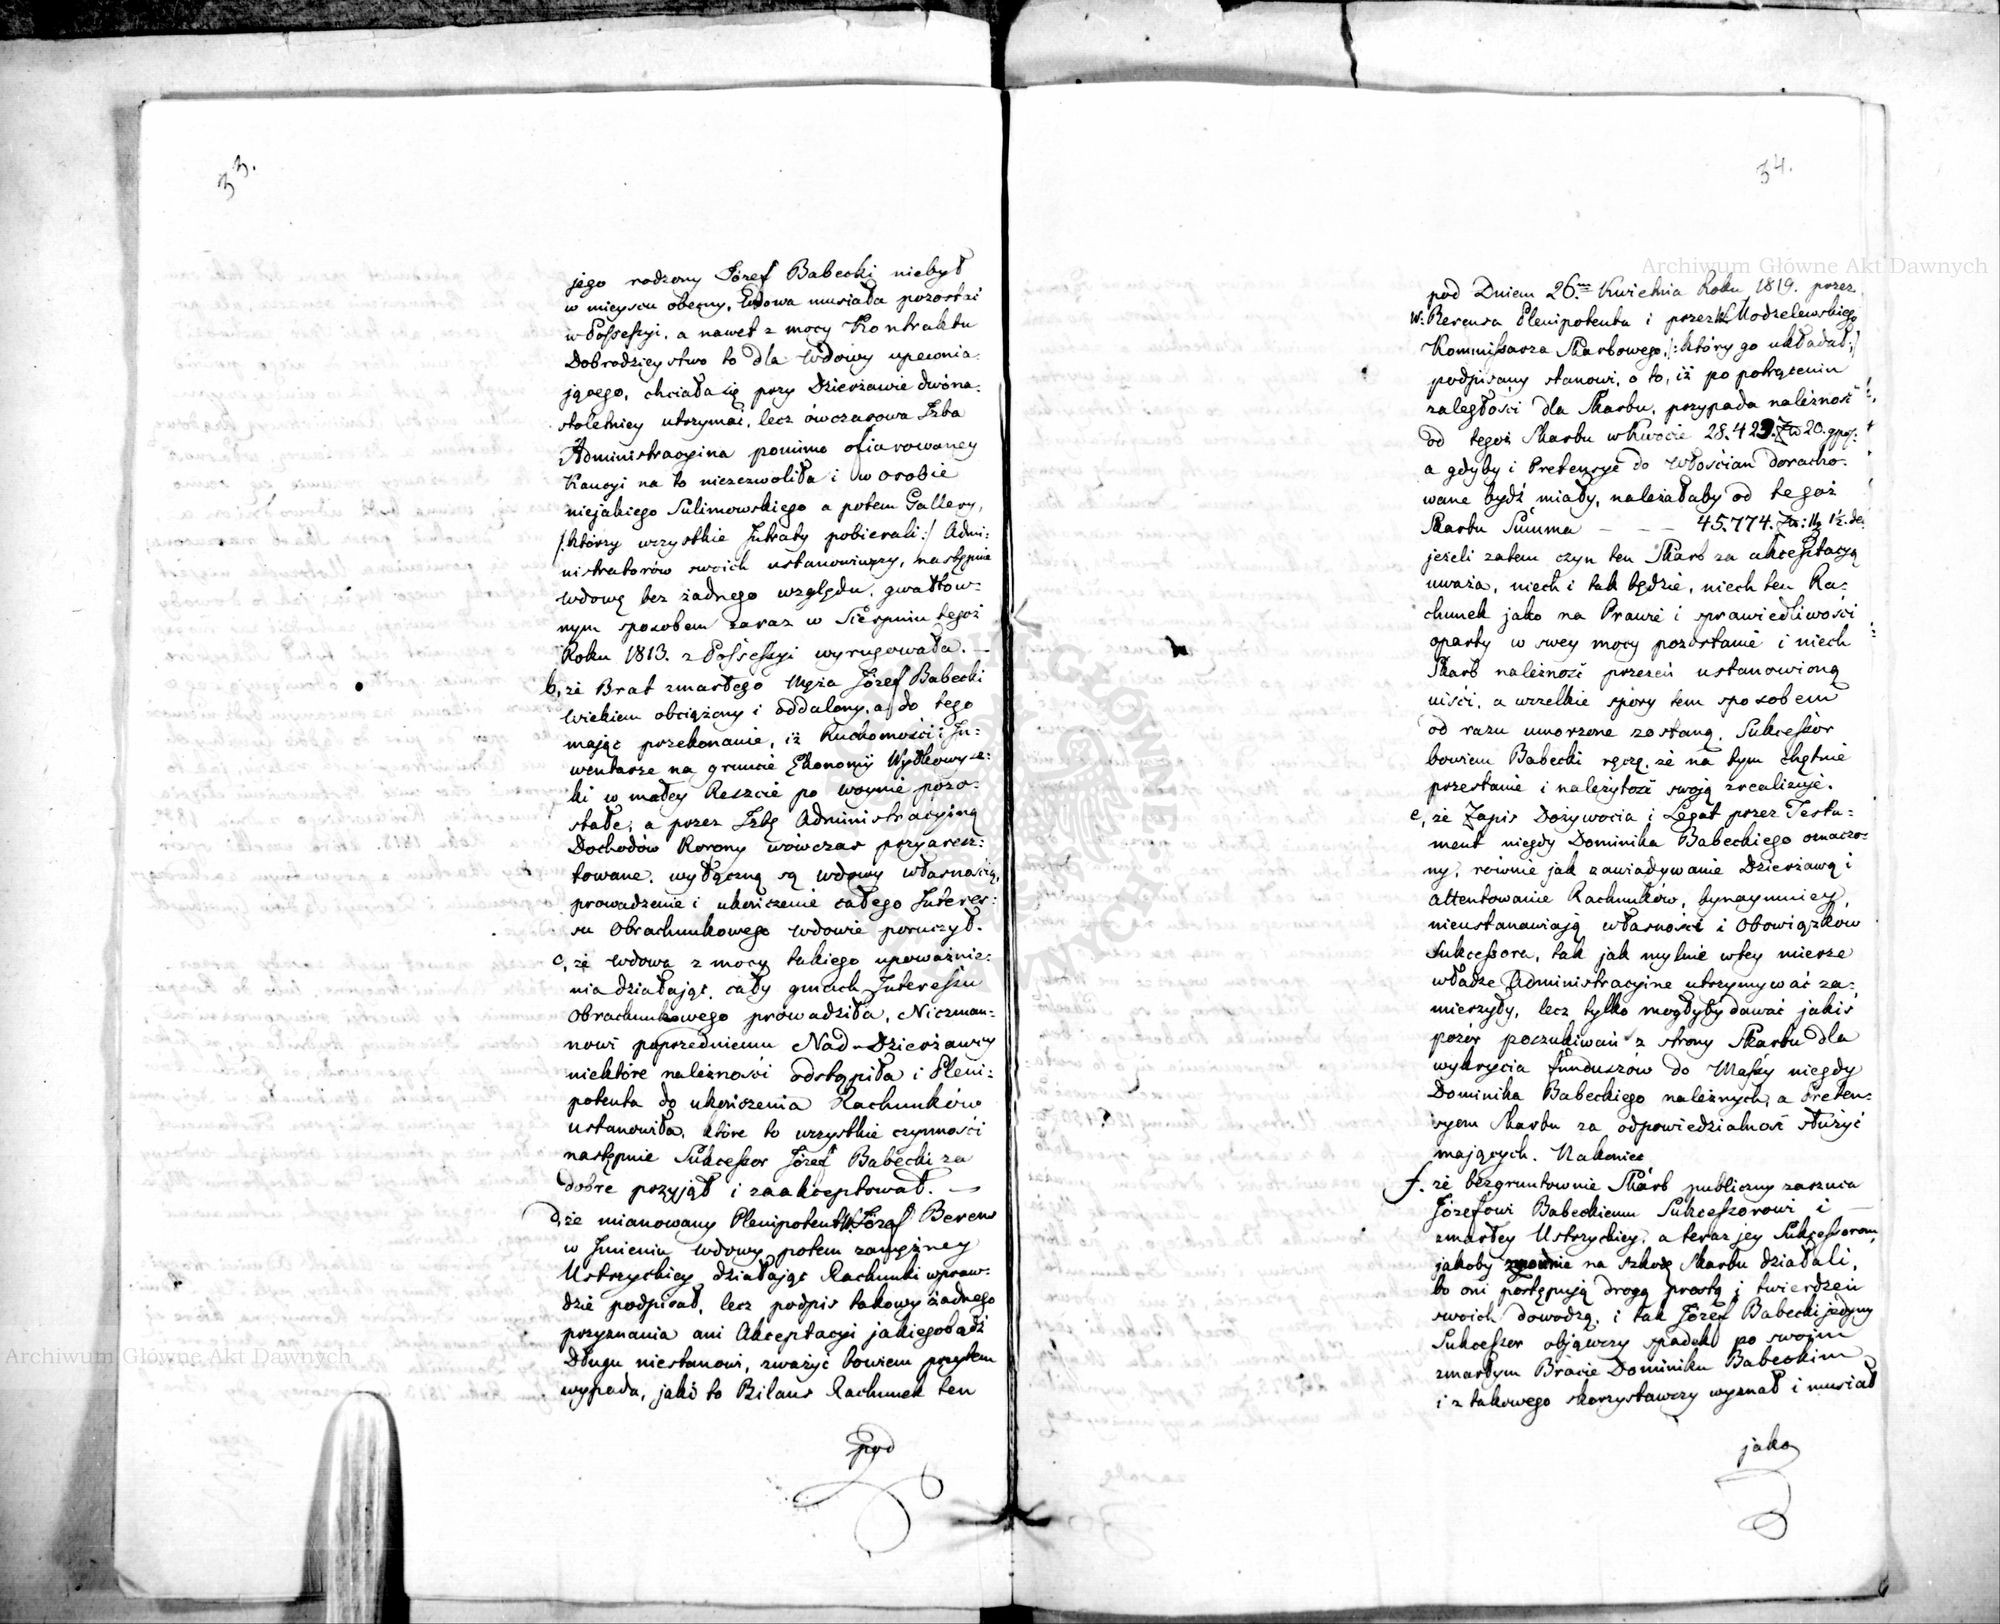 33.
jego rodzony Józef Babecki niebył
w mieyscu obecny, Wdowa musiała pozostać
w Possessyi, a nawet z mocy Kontraktu
Dobrodzieystwo to dla Wdowy upewnia-
jącego, chciała się przy Dzierżawie dwóna-
stoletniey utrzymać, lecz ówczasowa Izba
Administracyina pomimo ofiarowaney
Kaucyi na to niezezwoliła i w osobie
niejakiego Sulimowskiego a potem Gallery,
/:którzy wszystkie Intraty pobierali:/ Admi-
nistratorów swoich ustanowiwszy, następnie
Wdowę bez żadnego względu, gwałtow-
nym sposobem zaraz w Sierpniu tegoż
Roku 1813. z Possessyi wyrugowała. —
b, że Brat zmarłego Męża Józef Babecki
Wiekiem obciążony i oddalony, a do tego
mając przekonanie, iż Ruchomości i In-
wentarze na gruncie Ekonomii
ki w małey Reszcie po woynie pozo-
stałe, a przez Izbę Administracyiną
Dochodów Korony wówczas przyaresz-
towane, wyłączną są wdowy własnością,
prowadzenie i ukończenie całego Interes-
su Obrachunkowego Wdowie poruczył.
c, że Wdowa z mocy takiego upoważnie-
nia działając, cały gmach Interessu
Obrachunkowego prowadziła, Niczman-
nowi poprzedniemu Nad-Dzierżawcy
niektóre należności odstąpiła i Pleni-
potenta do ukończenia Rachunków
ustanowiła, które to wszystkie czynności
następnie Sukcessor Józef Babecki za
dobre przyjął i zaakceptował. —
d, że mianowany Plenipotent W. Józef Berens
w Imieniu Wdowy potem zamężney
Ustrzyckiey działając Rachunki wpraw-
dzie podpisał, lecz podpis takowy żadnego
przyznania ani Akceptacyi jakiegobądź
Długu niestanowi, zważyć bowiem przytem
wypada, jako to Bilans Rachunek ten
pod
34.
pod Dniem 26.m Kwietnia Roku 1819. przez
W: Berensa Plenipotenta i przez W. Modzelewskiego
Kommissarza Skarbowego, /:który go układał:/
podpisany stanowi, o to, iż po potrąceniu
zaległości dla Skarbu, przypada należność
od tegoż Skarbu w Kwocie 28.423. Zł 20. gpol:
a gdyby i Pretensye do Włościan doracho-
wane bydź miały, należałaby od tegoż
Skarbu Summa — — — 45.774. Zł: 11g 1½. de:
jeżeli zatem czyn ten Skarb za akceptacyą
uważa, niech i tak będzie, niech ten Ra-
chunek jako na Prawie i sprawiedliwości
oparty w swey mocy pozostanie i niech
Skarb należność przezeń ustanowioną
uiści, a wszelkie spory tem sposobem
od razu umorzone zostaną, Sukcessor
bowiem Babecki ręczę, że na tym chętnie
przestanie i należytość swoją zrealizuje.
e, że Zapis Dożywocia i Legat przez Testa-
ment niegdy Dominika Babeckiego oznaczo-
ny, równie jak zawiadywanie Dzierżawą i
attentowanie Rachunków, bynaymniey
nieustanawiają własności i Obowiązków
Sukcessora, tak jak mylnie w tey mierze
władze Administracyine utrzymywać za-
mierzyły, lecz tylko mogłyby dawać jakiś
pozór poszukiwań z strony Skarbu dla
wykrycia funduszów do Massy niegdy
Dominika Babeckiego należnych, a Preten-
syom Skarbu za odpowiedzialność służyć
mających. Nakoniec
f. że bezgruntownie Skarb publiczny zarzuca
Józefowi Babeckiemu Sukcessorowi i —
zmarłey Ustrzyckiey, a teraz jey Sukcessorom,
jakoby zmownie na szkodę Skarbu działali,
bo oni postępują drogą prostą i twierdzeń
swoich dowodzą, i tak Józef Babecki jedyny
Sukcessor objąwszy spadek po swoim
zmarłym Bracie Dominiku Babeckim
i z takowego skorzystawszy wyznał i musiał
jako
Archiwum Główne Akt Dawnych
Archiwum Główne Akt Dawnych